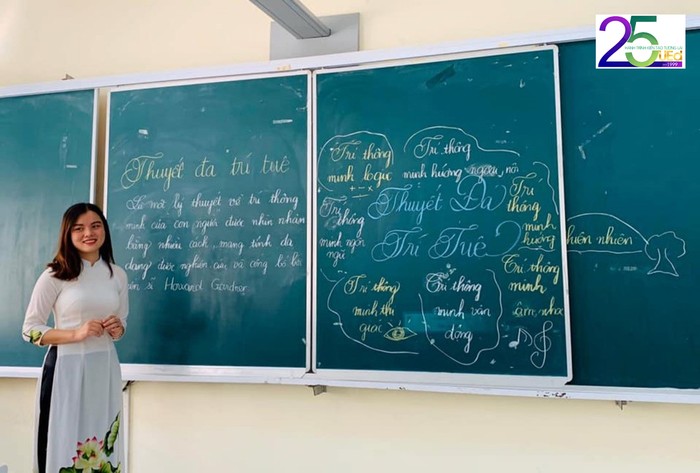 25
UEd
1999
Thuyết đa trí tuệ
Là một lý thuyết về trí thông
minh của con người được nhìn nhận
bằng nhiều cách, mang tính đa
dạng được nghiên cứu và công bố bởi
sĩ Howard Gardner.
Trí thông
minh logic
+ - ×
Trí thông
minh hướng ngoại, nội
Trí thông
minh ngôn
ngữ
Thuyết Đa
Trí Tuệ
Trí
thông
minh
hướng
thiên nhiên
Trí thông
minh thị
giác
Trí thông
minh vận
động
Trí thông
minh
âm nhạc